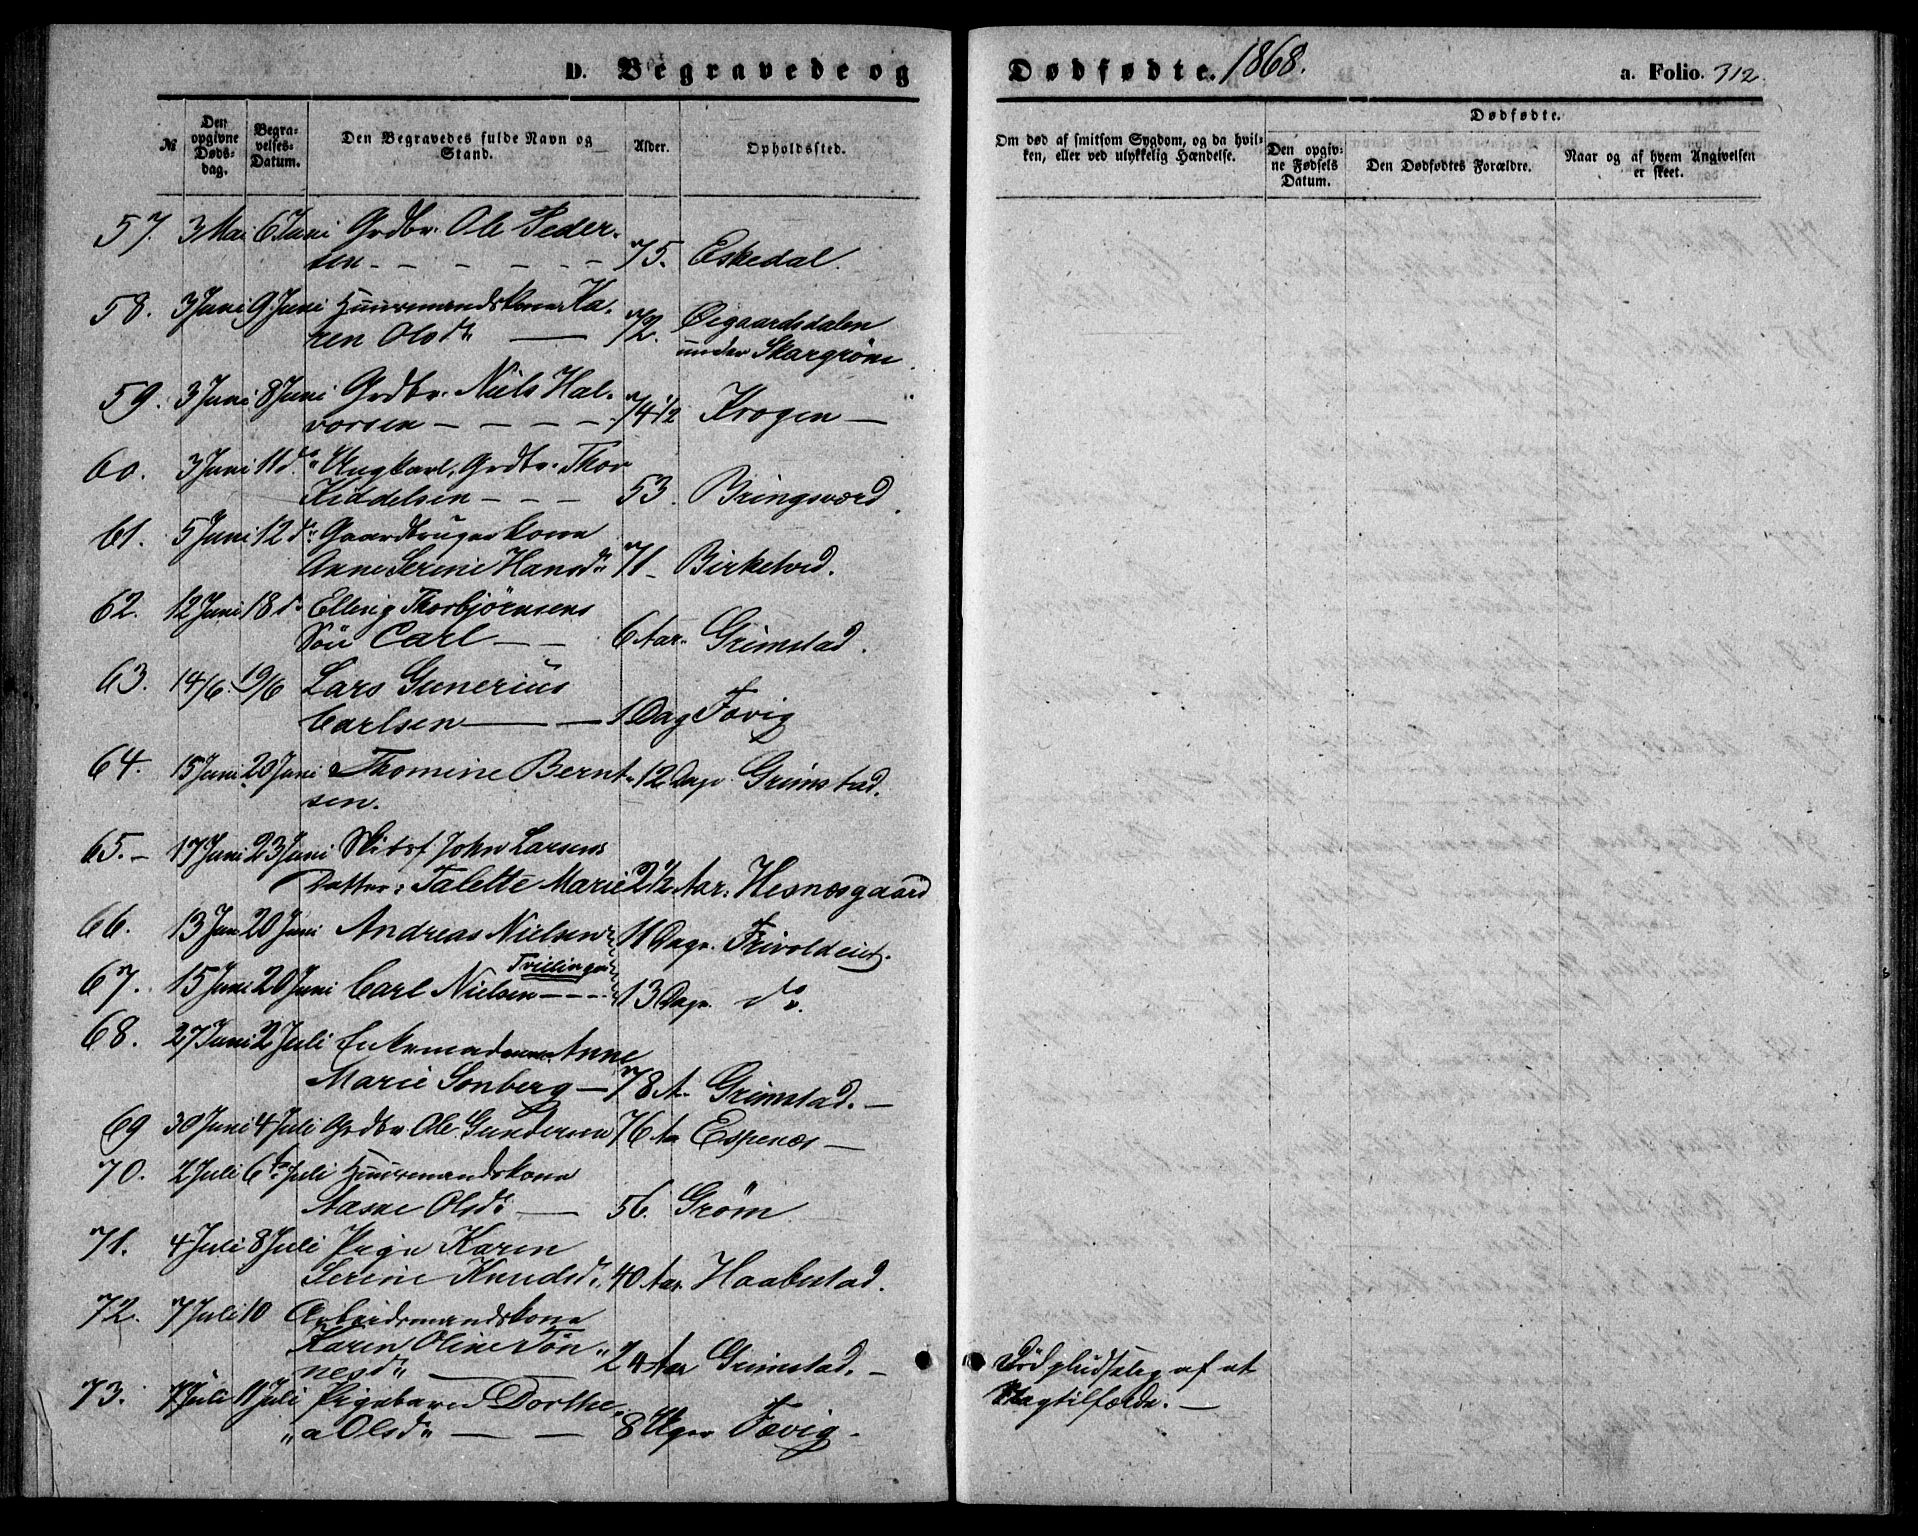 D. Begravede og Dødfødte. 1868.
a. Folio. 312.
№
Den opgivne Døds-dag.
Begra-velses-Datum.
Den Begravedes fulde Navn og Stand.
Alder.
Opholdsfted.
Om død af smitsom Sygdom, og da hvil-
ken, eller ved ulykkelig Hændelse.
Dødfødte.
Den opgiv-
ne Fødsels
Datum.
Den Dødfødtes Forældre.
Naar og af hvem Angivelsen
er skeet.
57. 3 Mai 6 Juni Grdbr. Ole Peder-
sen - - - - - - 75. Eskedal.
58. 3 Juni 9 Juni Huusmandskone Ka-
ren Olsdr — 72. Øigaardsdalen
under Skargrøm.
59. 3 Juni 8 Juni Grdbr. Niels Hal-
vorsen - - - - 74 1/2 Krogen —
60. 3 Juni 11 do Ungkarl, Grdbr. Thor
Kiddelsen - - - 53. Bringsværd.
61. 5 Juni 12 do Gaardbrugerkone
Anne Serine Hansdr 71 - Birketved.
62. 12 Juni 18 do Ellevig Thorbjørnsens
Søn Carl - - 6 Aar. Grimstad.
63. 14/6. 19/6 Lars Gunerius
Carlsen — — 1 Dag Fævig
64. 15 Juni 20 Juni Thomine Bernt-
sen. 12 Dage Grimstad.
65. - 17 Juni 23 Juni Skibsf John Larsens
Datter: Talette Marie 2 1/2 Aar. Hesnæsgaard
66. 13 Jun 20 Juni Andreas Nielsen 11 Dage. Frivoldeiet.
67. 15 Juni 20 Juni Carl Nielsen - - - Tvillinge 13 Dage. do.
68. 27 Juni 2 Juli Enkemadame Anne
Marie Sonberg — 78 A. Grimstad. —
69 30 Juni 4 Juli Grdbr Ole Gundersen 76 Aa Espenæs —
70. 2 Juli 6te Juli Huusmandskone
Aasne Olsdr — 56. Grøm
71. 4 Juli 8 Juli Pige Karen
Serine Knudsdr. 40 Aar Haabestad.
72. 7 Juli 10 Arbeidsmandskone
Karen Oline Tøn-
nesdr — 24 Aar Grimstad. — Død pludselig af et
Slagtilfælde. —
73. 7 Juli 11 Juli Pigebarn Dorthe-
a Olsdr — — 8 Uger Fævig -